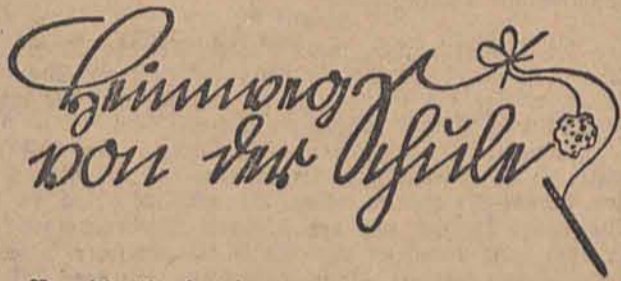 Heimweg
von der Schule